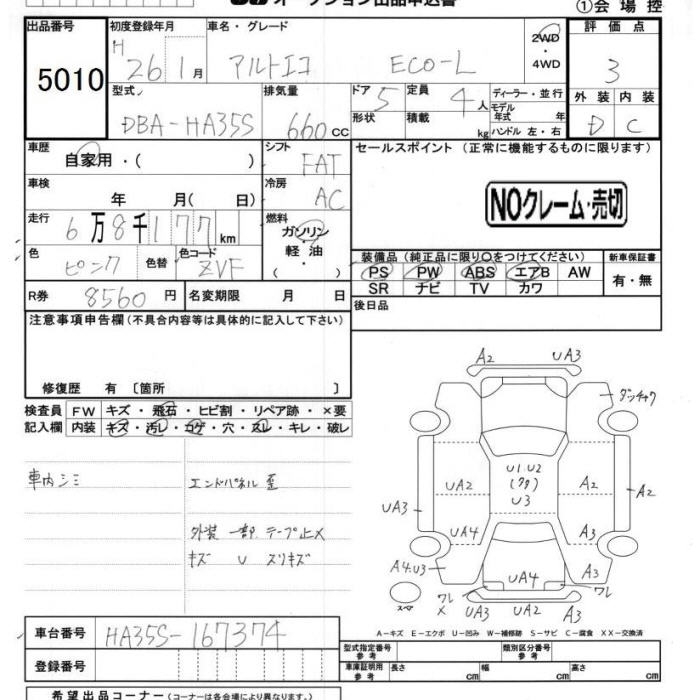 オークション出品申込書
①会場控
出品番号 5010
初度登録年月 H 26 1月
車名・グレード アルトエコ ECO-L
2WD・4WD
評価点 3
外装 D
内装 C
型式 DBA-HA35S
排気量 660cc
ドア 5
形状
定員 4人
積載 kg
ディーラー・並行
モデル年式 年
ハンドル 左・右
車歴 自家用・( )
シフト FAT
セールスポイント (正常に機能するものに限ります)
NOクレーム・売切
車検 年 月( 日)
冷房 AC
走行 6万8千177km
燃料 ガソリン・軽油
色 ピンク
色替
色コード ZVF
装備品 (純正品に限り○をつけてください)
新車保証書
PS PW ABS エアB AW
有・無
SR ナビ TV カワ
R券 8560円
名変期限 月 日
後日品
注意事項申告欄(不具合内容等は具体的に記入して下さい)
修復歴 有 〔箇所 〕
検査員記入欄
FW キズ・飛石・ヒビ割・リペア跡・×要
内装 キズ・汚レ・コゲ・穴・スレ・キレ・破レ
車内シミ
エンドパネル 歪
外装 一部 テープ止メ
キズ U スリキズ
A2 UA3
ダッチャク
U1.U2
UA2 A2 A2
U3
UA3
UA4 A3
A4.U3 A3
UA4
ワレ
ワレ
スペア
メ UA3 UA2 A3
A-キズ E-エクボ U-凹み W-補修跡 S-サビ C-腐食 XX-交換済
車台番号 HA35S-167374
登録番号
型式指定番号 参考
類別区分番号 参考
車庫証明用 参考 長さ cm 幅 cm 高さ cm
希望出品コーナー(コーナーは各会場により異なります。)